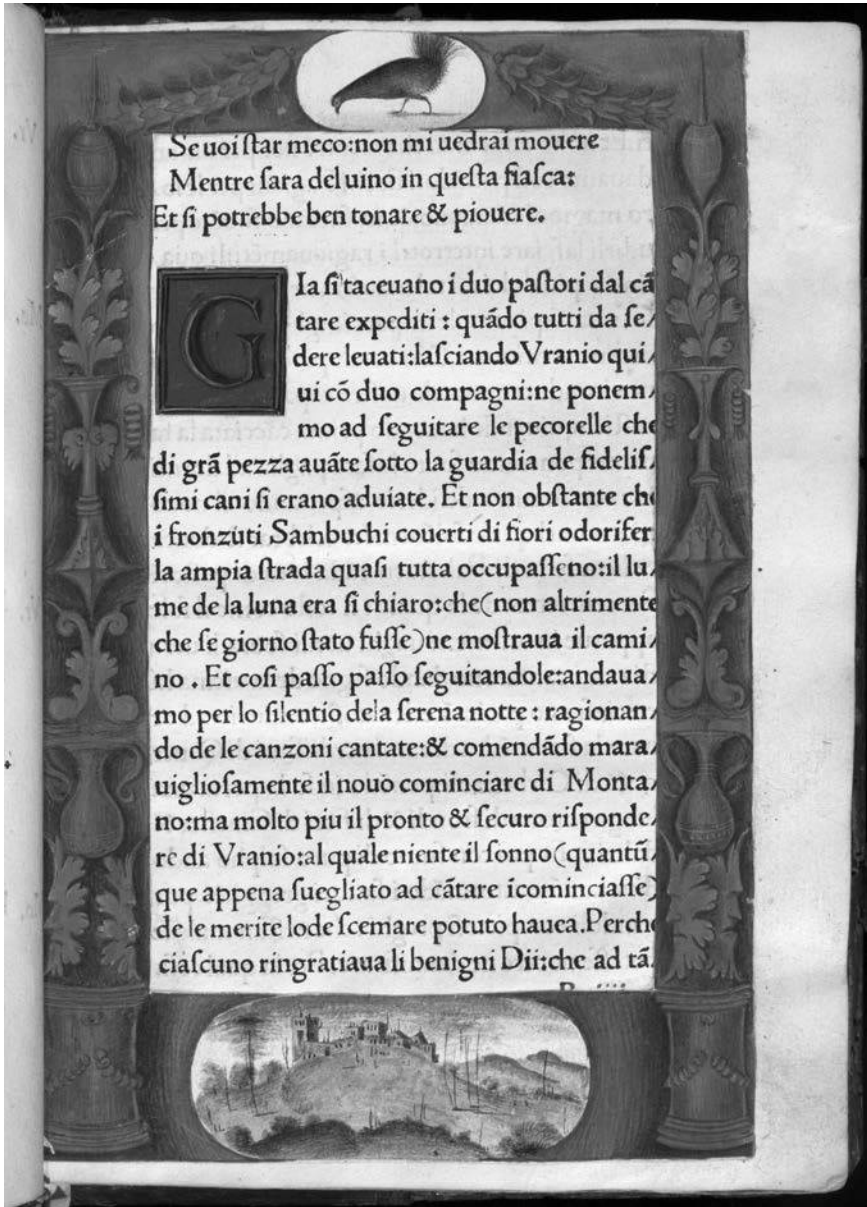 Se uoi ſtar meco:non mi uedrai mouere
Mentre ſara del uino in queſta fiaſca:
Et ſi potrebbe ben tonare & piouere.
GIa ſi taceuano i duo paſtori dal cā
tare expediti : quādo tutti da ſe/
dere leuati:laſciando Vranio qui/
ui cō duo compagni:ne ponem/
mo ad ſeguitare le pecorelle che
di grā pezza auāte ſotto la guardia de fideliſ/
ſimi cani ſi erano aduiate. Et non obſtante che
i fronzuti Sambuchi couerti di fiori odorifer
la ampia ſtrada quaſi tutta occupaſſeno:il lu/
me de la luna era ſi chiaro:che(non altrimente
che ſe giorno ſtato fuſſe)ne moſtraua il cami/
no . Et coſi paſſo paſſo ſeguitandole:andaua/
mo per lo ſilentio dela ſerena notte : ragionan/
do de le canzoni cantate:& comendādo mara/
uiglioſamente il nouo cominciare di Monta/
no:ma molto piu il pronto & ſecuro riſponde/
re di Vranio:al quale niente il ſonno(quantū/
que appena ſuegliato ad cātare icominciaſſe)
de le merite lode ſcemare potuto hauea.Perche
ciaſcuno ringratiaua li benigni Dii:che ad tā/